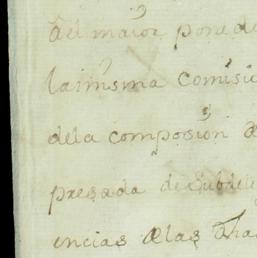 del maior pone de
la misma comisi
dela composion d
presada de Subdele
encias alas